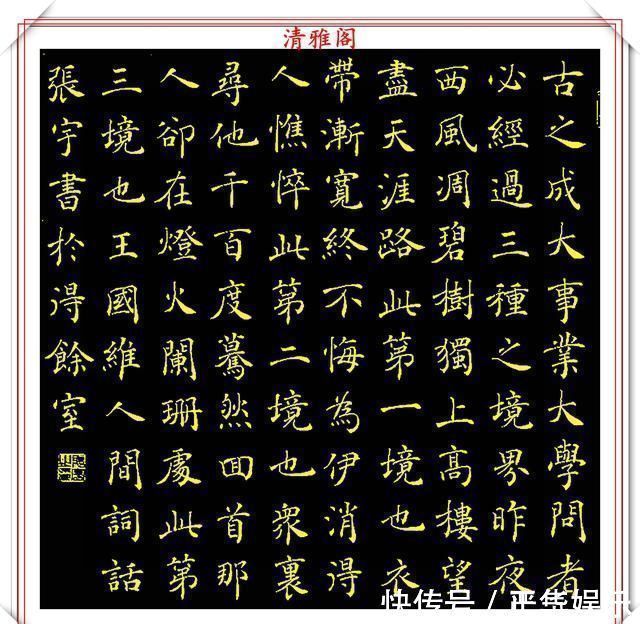 清雅阁
古之成大事業大學問者
必經過三種之境界昨夜
西風凋碧樹獨上高樓望
盡天涯路此第一境也衣
帶漸寬終不悔為伊消得
人憔悴此第二境也眾裏
尋他千百度驀然回首那
人卻在燈火闌珊處此第
三境也王國維人間詞話
張宇書於得餘室
快传号